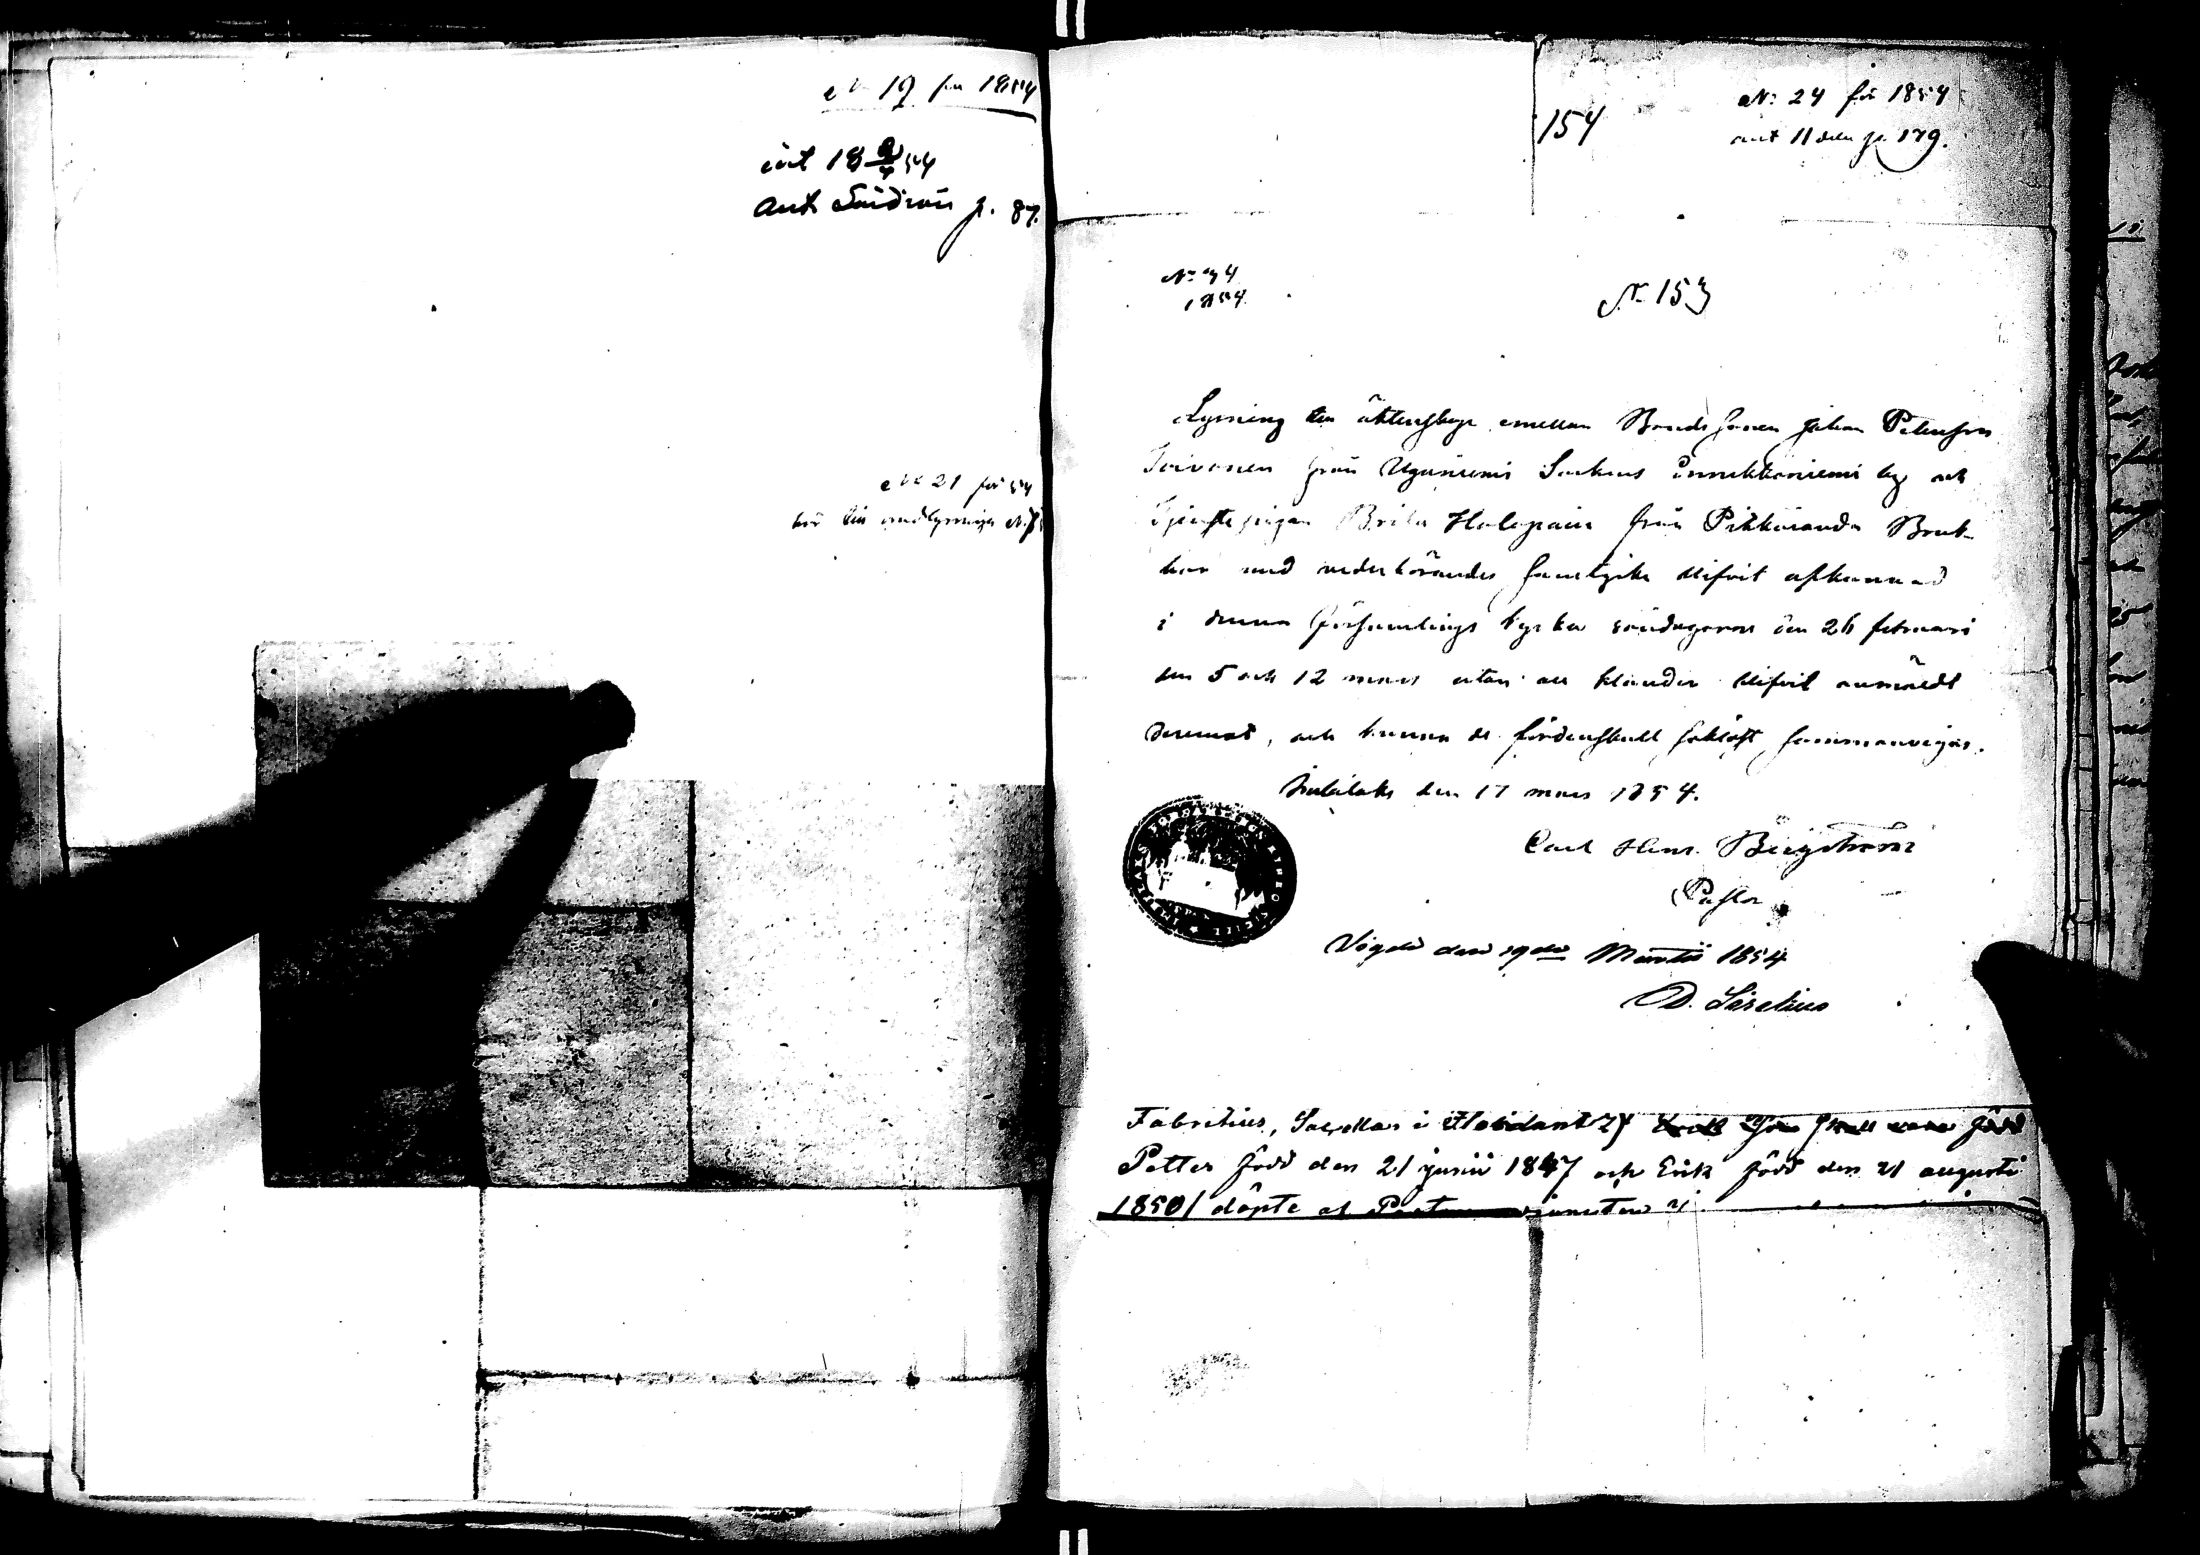 No 19 för 1854
int 18 2/4 54
Ant Suidran p. 87.
No 21 för 54
hör till
No 24 för 1854
ant 11 den p. 179.
154
No 34
1854
No 153
Lysning till äktenskap emellan Bondesonen Johan Petersson
Toivonen från Uguniemi Sockens by och
Tjenstepigan Brita Halapain från Pitkäranda Bruk
har med vederbörandes samtycke blifvit afkunnad
i denna församlings kyrka söndagarne den 26 februari
den 5 och 12 mars utan att klander blifvit anmäldt
deremot, och kunna de fördenskull såklöst sammanvigas.
Imbilaks den 17 mars 1854.
Carl Henr. Bergström
Pastor
Vigde den 19de Martii 1854
D. Sirelius
Fabritius, Sacellan i
Petter född den 21 junii 1847 och Erik född den 21 augusti
1850/ döpte af